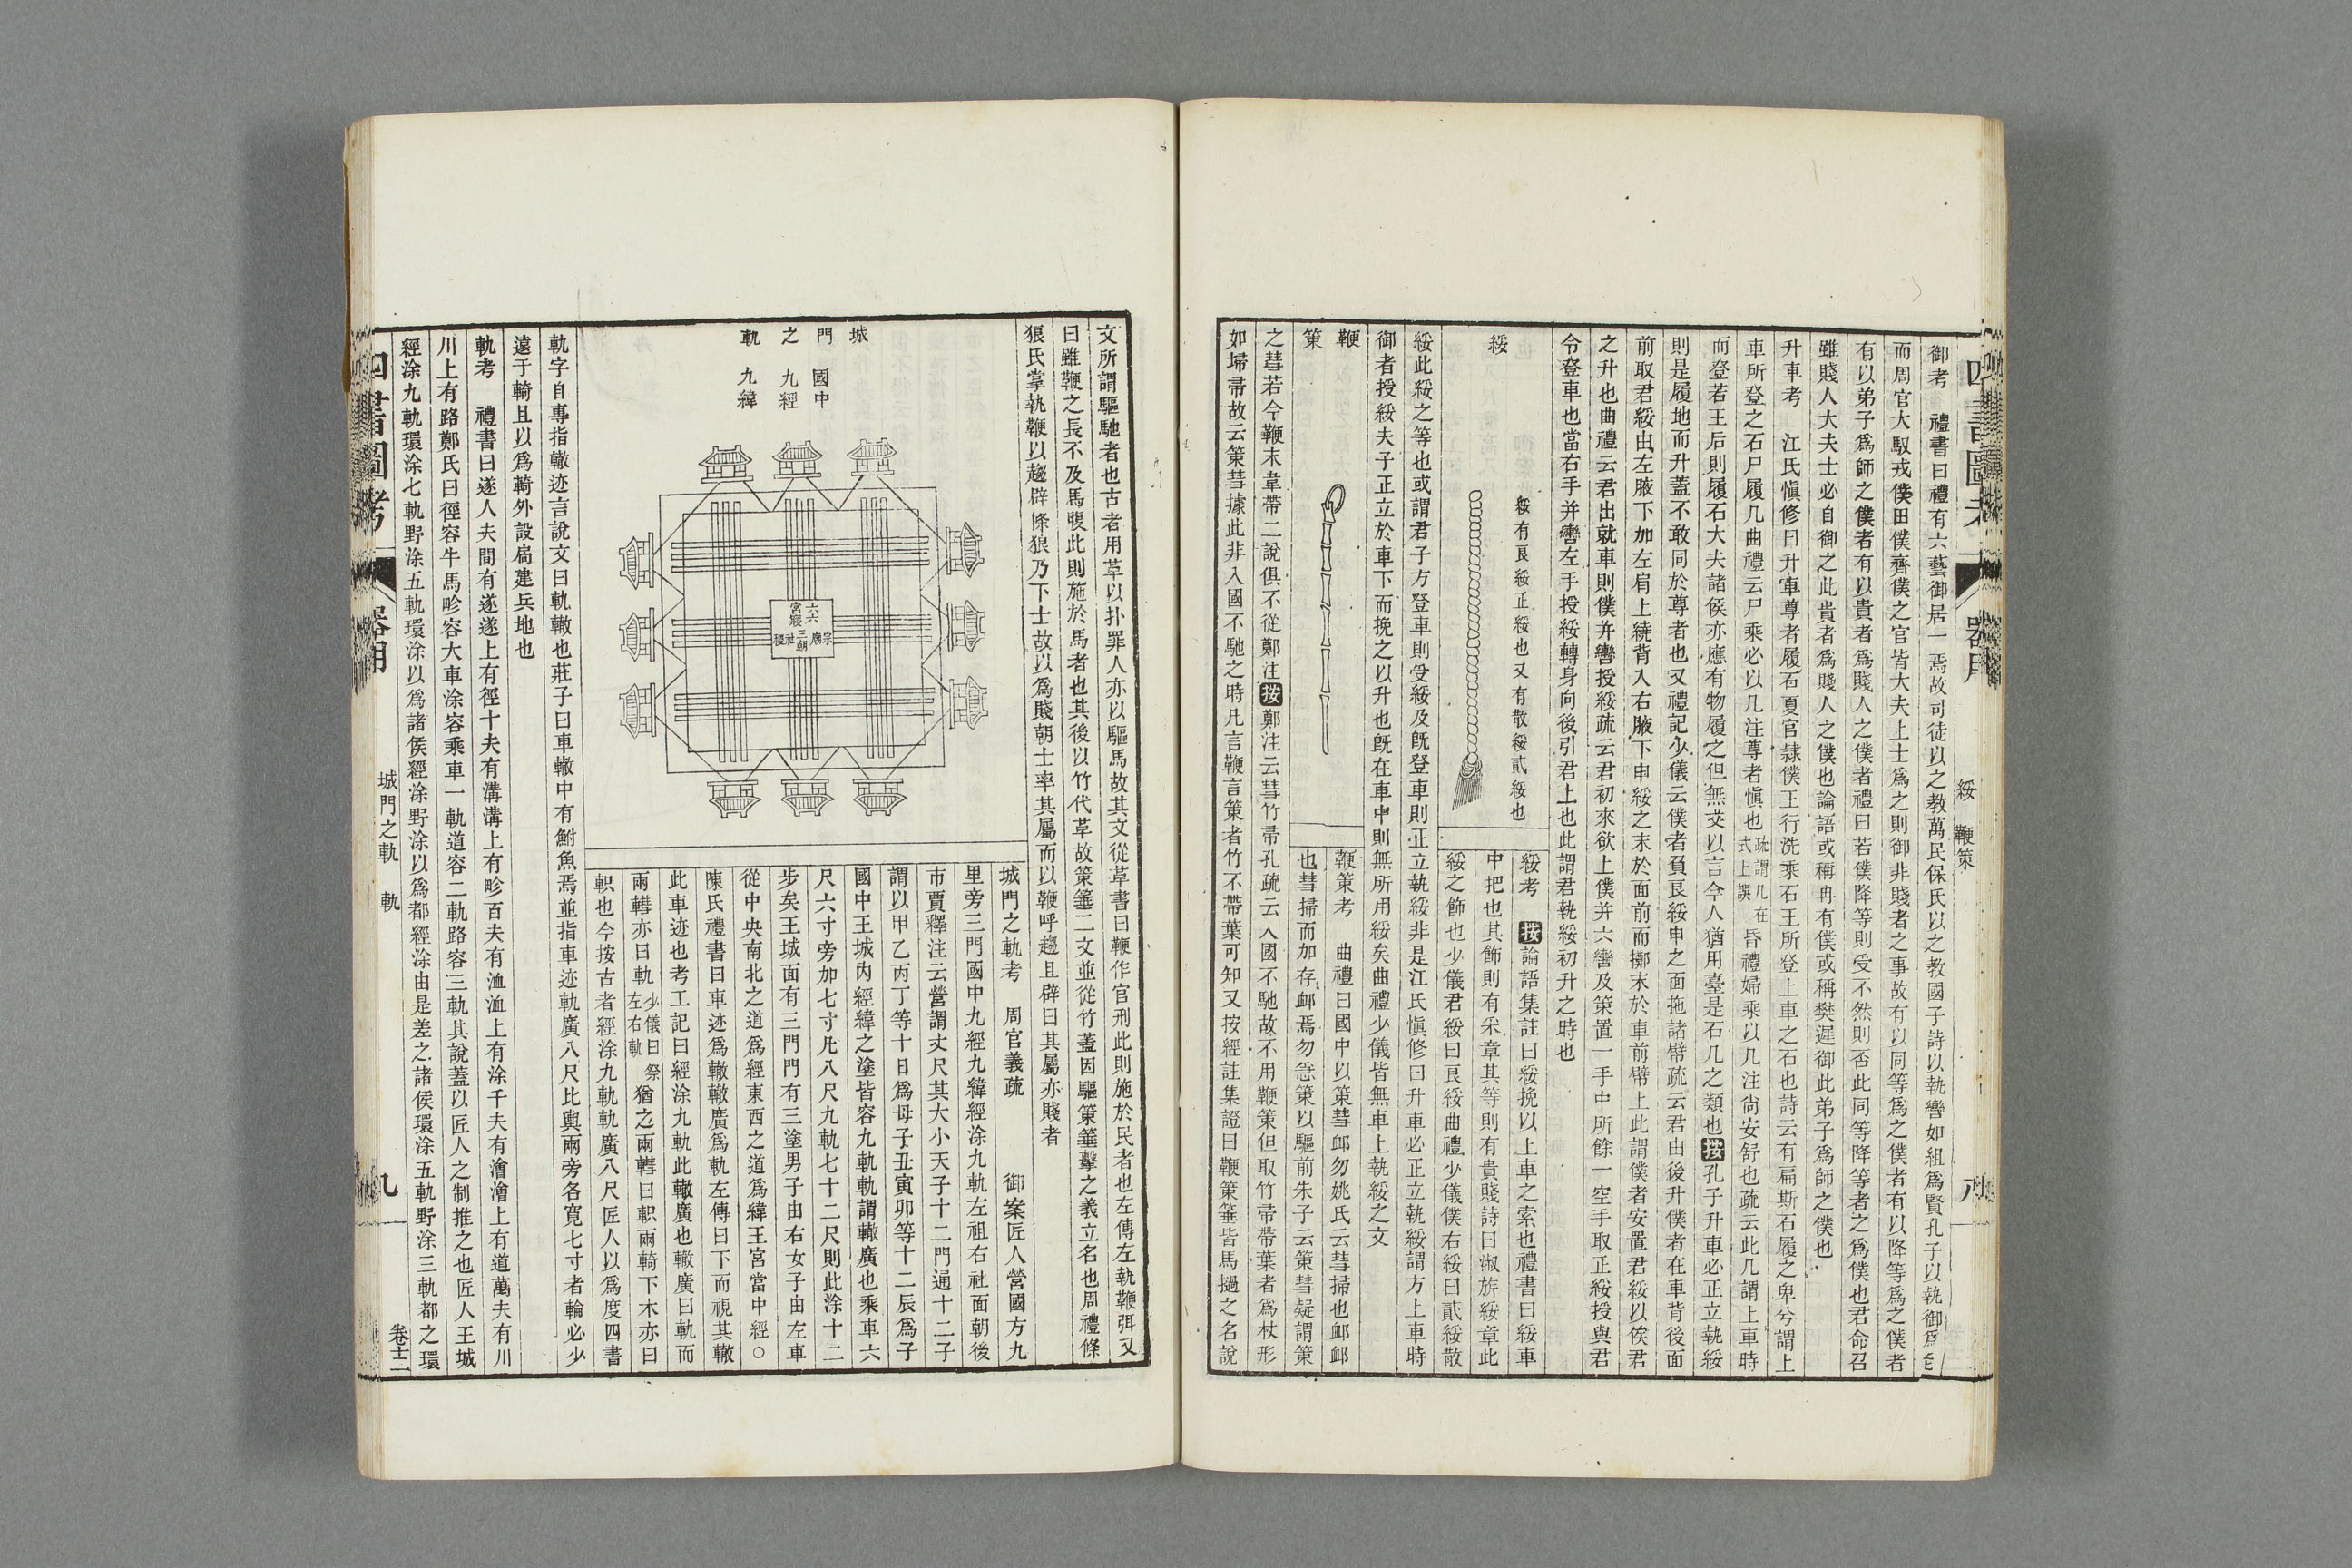 四書圖考
器用
綏　鞭策
八
御考　禮書曰禮有六藝御居一焉故司徒以之教萬民保氏以之教國子詩以執轡如組爲賢孔子以執御爲己
而周官大馭戎僕田僕齊僕之官皆大夫上士爲之則御非賤者之事故有以同等爲之僕者有以降等爲之僕者
有以弟子爲師之僕者有以貴者爲賤人之僕者禮曰若僕降等則受不然則否此同等降等者之爲僕也君命召
雖賤人大夫士必自御之此貴者爲賤人之僕也論語或稱冉有僕或稱樊遲御此弟子爲師之僕也
升車考　江氏愼修曰升車尊者履石夏官隷僕王行洗乘石王所登上車之石也詩云有扁斯石履之卑兮謂上
車所登之石尸履几曲禮云尸乘必以几注尊者愼也疏謂几在式上誤昏禮婦乘以几注尙安舒也疏云此几謂上車時
而登若王后則履石大夫諸侯亦應有物履之但無文以言今人猶用臺是石几之類也按孔子升車必正立執綏
則是履地而升蓋不敢同於尊者也又禮記少儀云僕者負良綏申之面拖諸幦疏云君由後升僕者在車背後面
前取君綏由左腋下加左肩上繞背入右腋下申綏之末於面前而擲末於車前幦上此謂僕者安置君綏以俟君
之升也曲禮云君出就車則僕并轡授綏疏云君初來欲上僕并六轡及策置一手中所餘一空手取正綏授與君
令登車也當右手并轡左手授綏轉身向後引君上也此謂君執綏初升之時也
綏
綏有良綏正綏也又有散綏貳綏也
綏考　按論語集註曰綏挽以上車之索也禮書曰綏車
中把也其飾則有采章其等則有貴賤詩曰淑旂綏章此
綏之飾也少儀君綏曰良綏曲禮少儀僕右綏曰貳綏散
綏此綏之等也或謂君子方登車則受綏及旣登車則正立執綏非是江氏愼修曰升車必正立執綏謂方上車時
御者授綏夫子正立於車下而挽之以升也旣在車中則無所用綏矣曲禮少儀皆無車上執綏之文
鞭
策
鞭策考　曲禮曰國中以策彗卹勿姚氏云彗掃也卹卹
也彗掃而加存卹焉勿急策以驅前朱子云策彗疑謂策
之彗若今鞭末韋帶二說俱不從鄭注按鄭注云彗竹帚孔疏云入國不馳故不用鞭策但取竹帚帶葉者爲杖形
如埽帚故云策彗據此非入國不馳之時凡言鞭言策者竹不帶葉可知又按經註集證曰鞭策箠皆馬撾之名說
文所謂驅馳者也古者用革以扑罪人亦以驅馬故其文從革書曰鞭作官刑此則施於民者也左傳左執鞭弭又
曰雖鞭之長不及馬腹此則施於馬者也其後以竹代革故策箠二文並從竹蓋因驅策箠擊之義立名也周禮條
狼氏掌執鞭以趨辟條狼乃下士故以爲賤朝士率其屬而以鞭呼趨且辟曰其屬亦賤者
城
門
之
軌
國中
九經
九緯
六六
宮寢
三朝
宗廟
社稷
城門之軌考　周官義疏　　御案匠人營國方九
里旁三門國中九經九緯經涂九軌左祖右社面朝後
市賈釋注云營謂丈尺其大小天子十二門通十二子
謂以甲乙丙丁等十日爲母子丑寅卯等十二辰爲子
國中王城內經緯之塗皆容九軌軌謂轍廣也乘車六
尺六寸旁加七寸凡八尺九軌七十二尺則此涂十二
步矣王城面有三門門有三塗男子由右女子由左車
從中央南北之道爲經東西之道爲緯王宮當中經○
陳氏禮書曰車迹爲轍轍廣爲軌左傳曰下而視其轍
此車迹也考工記曰經涂九軌此轍廣也轍廣曰軌而
兩轊亦曰軌少儀曰祭左右軌猶之兩轊曰軹兩輢下木亦曰
軹也今按古者經涂九軌軌廣八尺匠人以爲度四書
軌字自專指轍迹言說文曰軌轍也莊子曰車轍中有鮒魚焉並指車迹軌廣八尺比輿兩旁各寬七寸者輪必少
遠于輢且以爲輢外設扃建兵地也
軌考　禮書曰遂人夫間有遂遂上有徑十夫有溝溝上有畛百夫有洫洫上有涂千夫有澮澮上有道萬夫有川
川上有路鄭氏曰徑容牛馬畛容大車涂容乘車一軌道容二軌路容三軌其說蓋以匠人之制推之也匠人王城
經涂九軌環涂七軌野涂五軌環涂以爲諸侯經涂野涂以爲都經涂由是差之諸侯環涂五軌野涂三軌都之環
四書圖考
器用
城門之軌　軌
九
卷十二